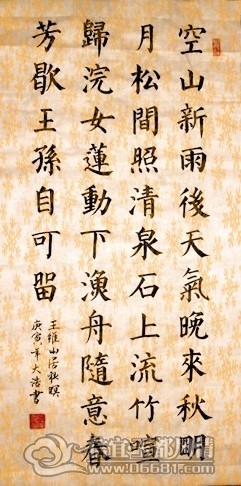 空山新雨後天氣晚來秋明
月松間照清泉石上流竹喧
歸浣女蓮動下漁舟隨意春
芳歇王孫自可留
王維山居秋暝
庚寅年大浩書
www.06681.com